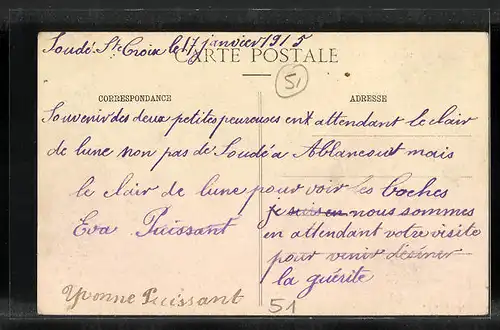 Soudé Ste Croix le 17 janvier 1915
CARTE POSTALE
51
CORRESPONDANCE
ADRESSE
Souvenir des deux petites peureuses en attendant le clair
de lune non pas de Soudé a Ablancourt mais
le clair de lune pour voir les boches
je suis en nous sommes
en attendant votre visite
pour venir
la guérite
Eva Puissant
Yvonne Puissant
51